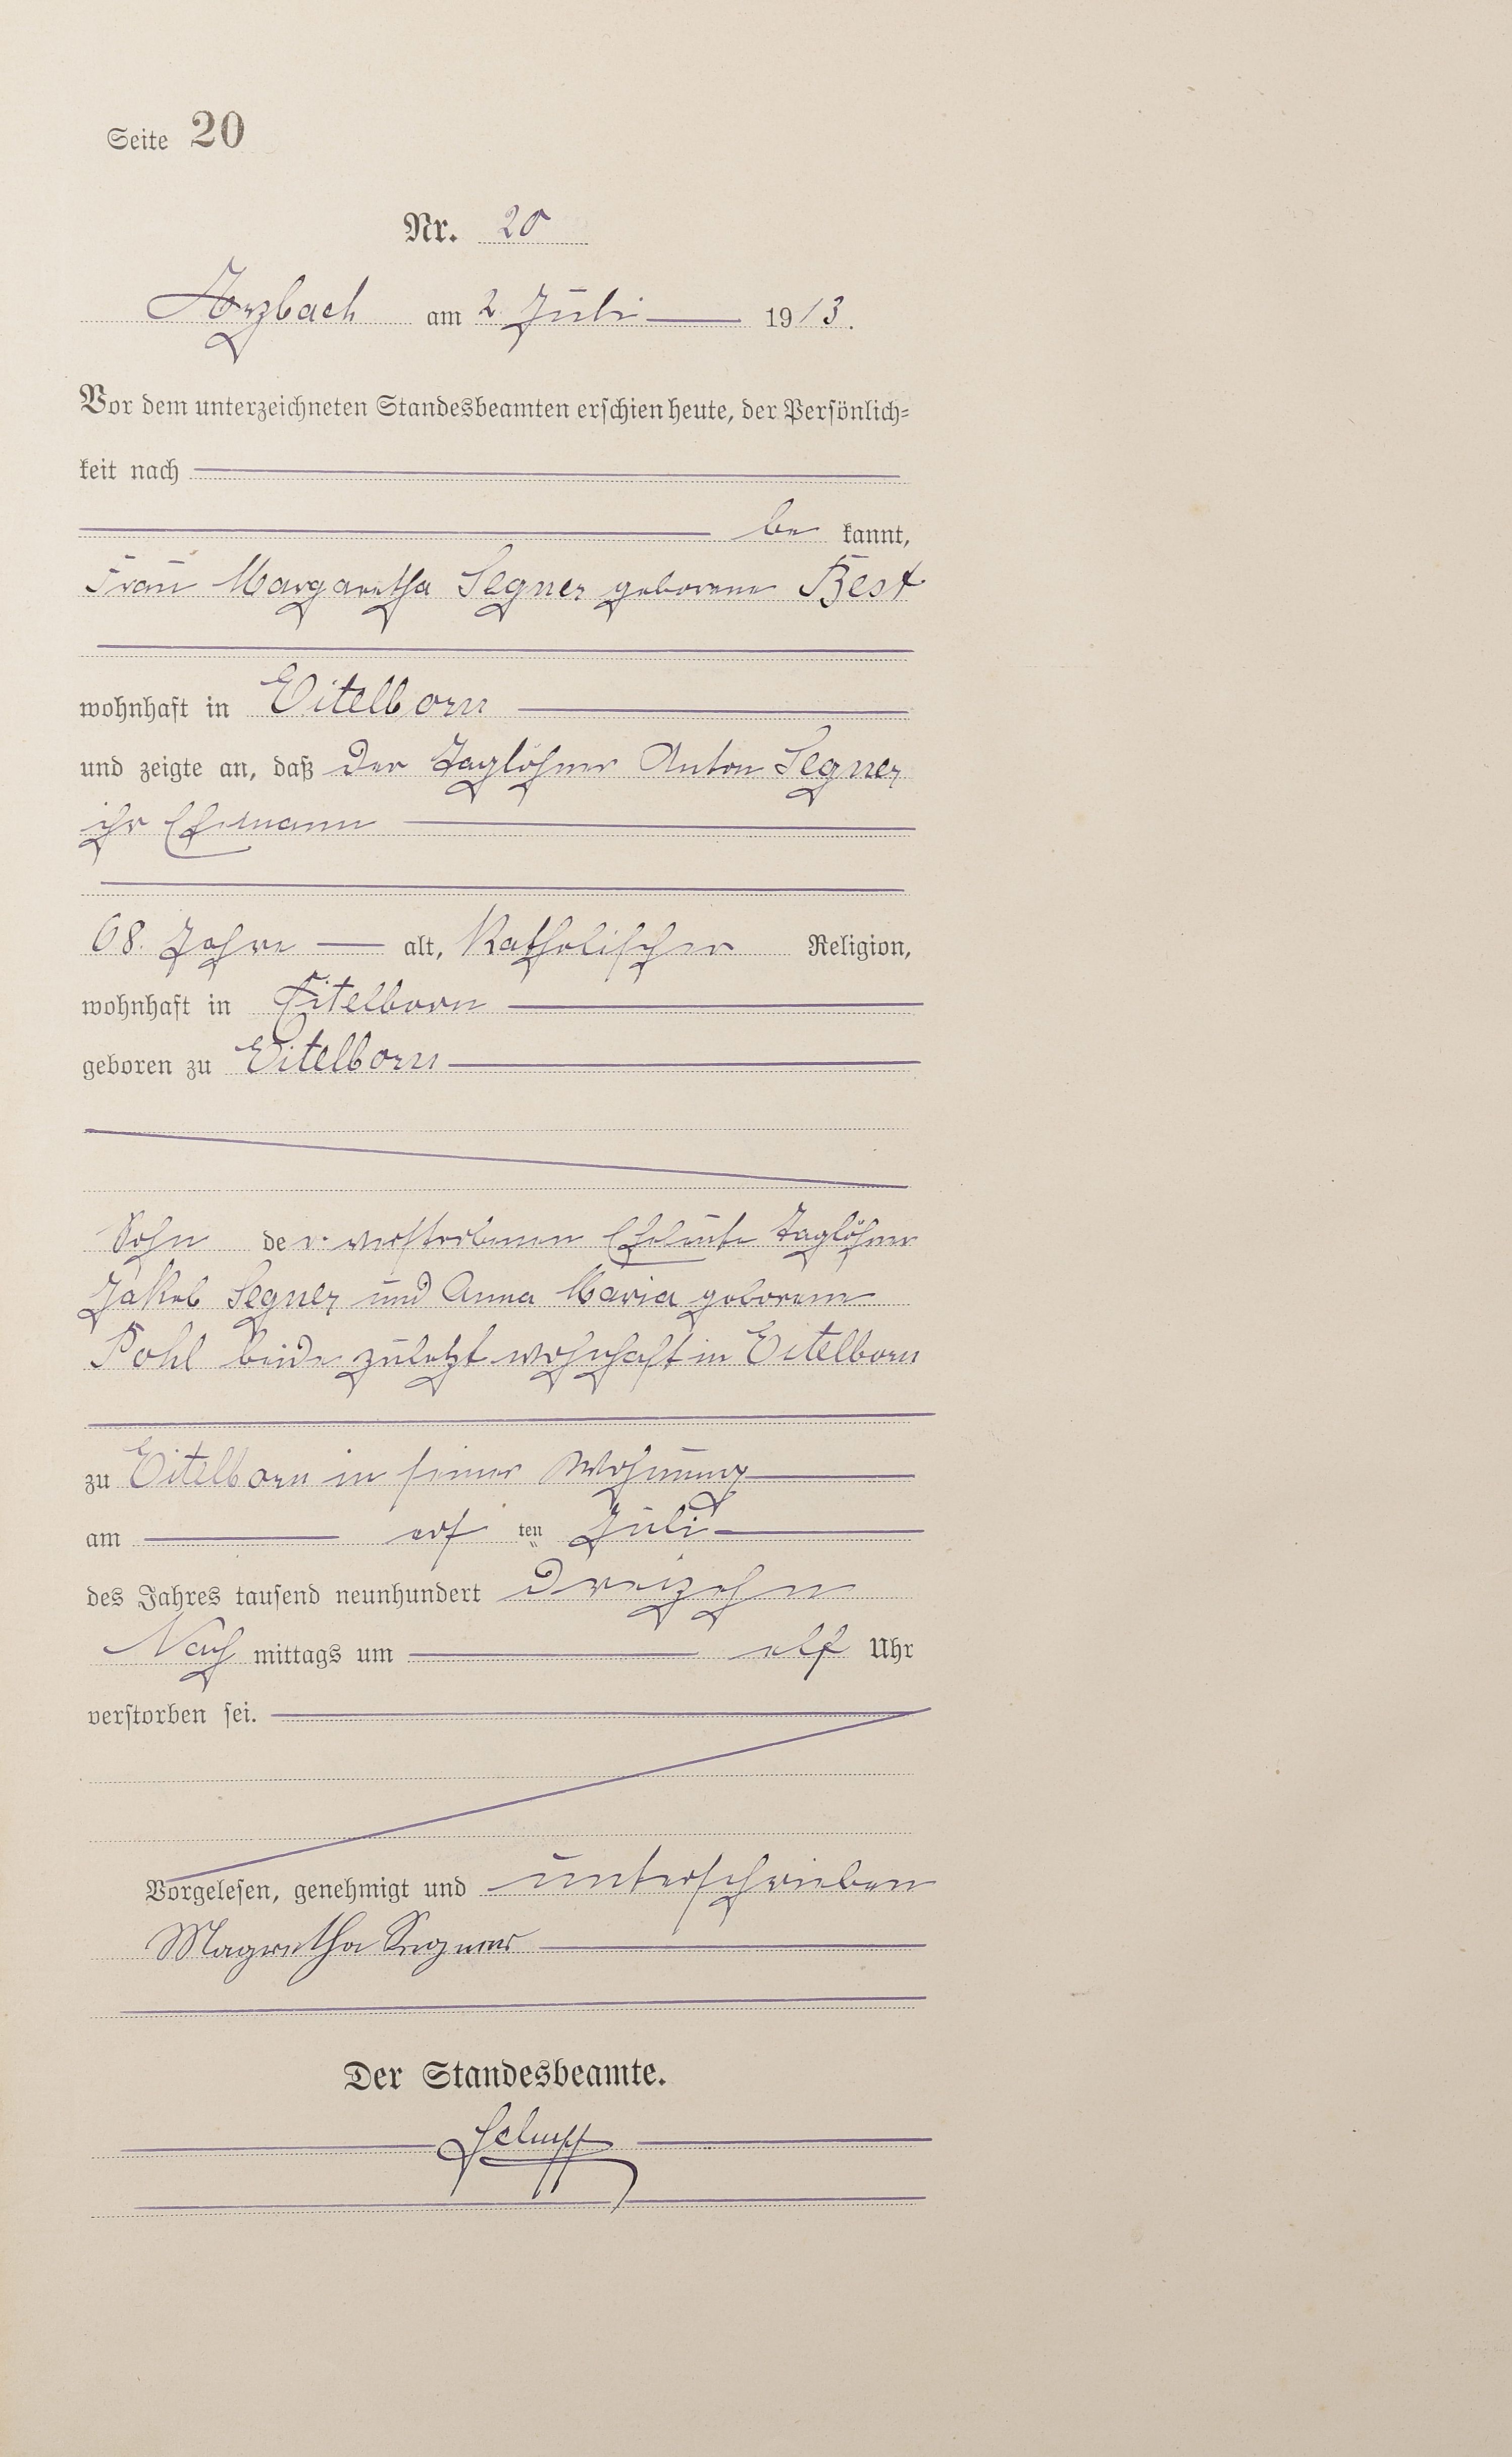 Seite 20
Nr. 20
Arzbach am 2 Juli 1913.
Vor dem unterzeichneten Standesbeamten erschien heute, der Persönlich-
keit nach
be kannt,
Frau Margaretha Segner geborene Best
wohnhaft in Eitelborn
und zeigte an, daß der Taglöhner Anton Segner
ihr Ehemann
68. Jahre alt, Katholischer Religion,
wohnhaft in Eitelborn
geboren zu Eitelborn
Sohn der verstorbenen Eheleute Taglöhner
Jakob Segner und Anna Maria geborene
Pohl beide zuletzt wohnhaft in Eitelborn
zu Eitelborn in seiner Wohnung
am ersten Juli
des Jahres tausend neunhundert dreizehn
Nach mittags um elf Uhr
verstorben sei.
Vorgelesen, genehmigt und unterschrieben
Magretha Segner
Der Standesbeamte.